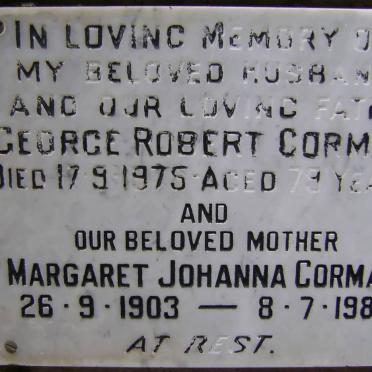 IN LOVING MEMORY O
MY BELOVED HUSBAN
AND OUR LOVING FAT
GEORGE ROBERT CORM
DIED 17·9·1975·AGED 79 YEA
AND
OUR BELOVED MOTHER
MARGARET JOHANNA CORMA
26·9·1903 — 8·7·198
AT REST.